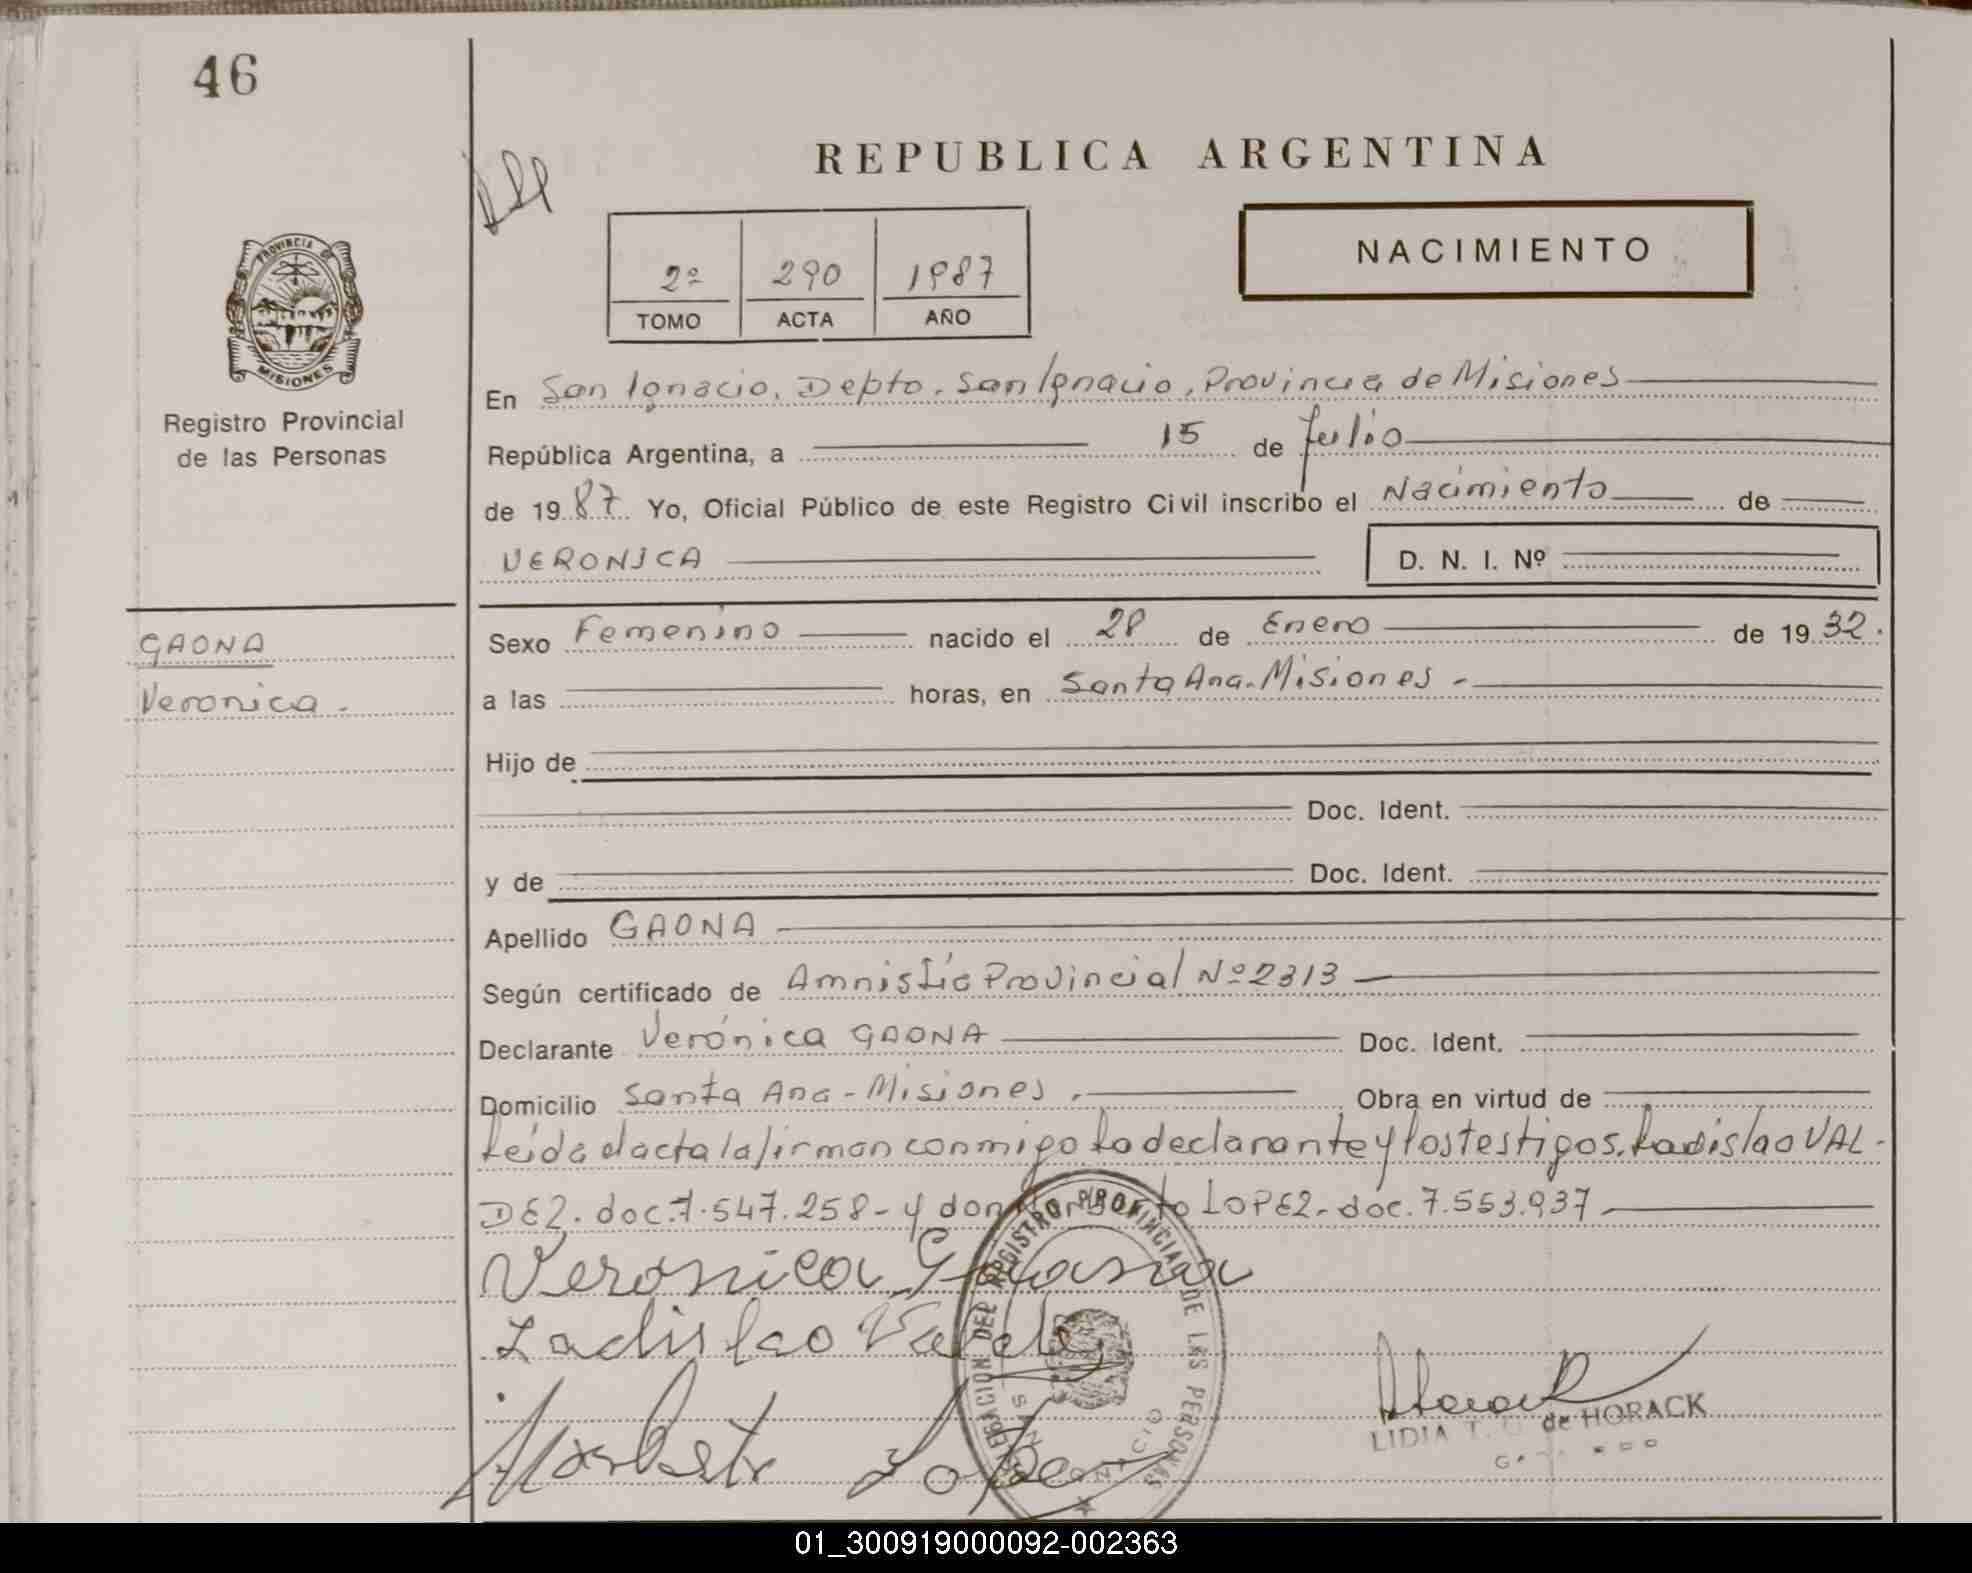 46
REPUBLICA ARGENTINA
2º 290 1987
TOMO ACTA AÑO
NACIMIENTO
PROVINCIA DE
MISIONES
Registro Provincial
de las Personas
En San Ignacio, Depto. San Ignacio, Provincia de Misiones
República Argentina, a 15 de Julio
de 1987 Yo, Oficial Público de este Registro Civil inscribo el Nacimiento de
VERONICA D. N. I. Nº
GAONA
Veronica.
Sexo Femenino nacido el 28 de Enero de 1932.
a las horas, en Santa Ana-Misiones.-
Hijo de
Doc. Ident.
y de Doc. Ident.
Apellido GAONA
Según certificado de Amnistía Provincial Nº 2313
Declarante Verónica GAONA Doc. Ident.
Domicilio Santa Ana-Misiones. Obra en virtud de
Leída el acta la firman conmigo la declarante y los testigos. Ladislao VAL-
DEZ. doc. 7.547.258- y don Norberto LOPEZ- doc. 7.553.937
Veronica Gaona
Ladislao Valdez
Norberto Lopez
DEL REGISTRO PROVINCIAL DE LAS PERSONAS
SAN IGNACIO
Horack
LIDIA T. de HORACK
01_300919000092-002363